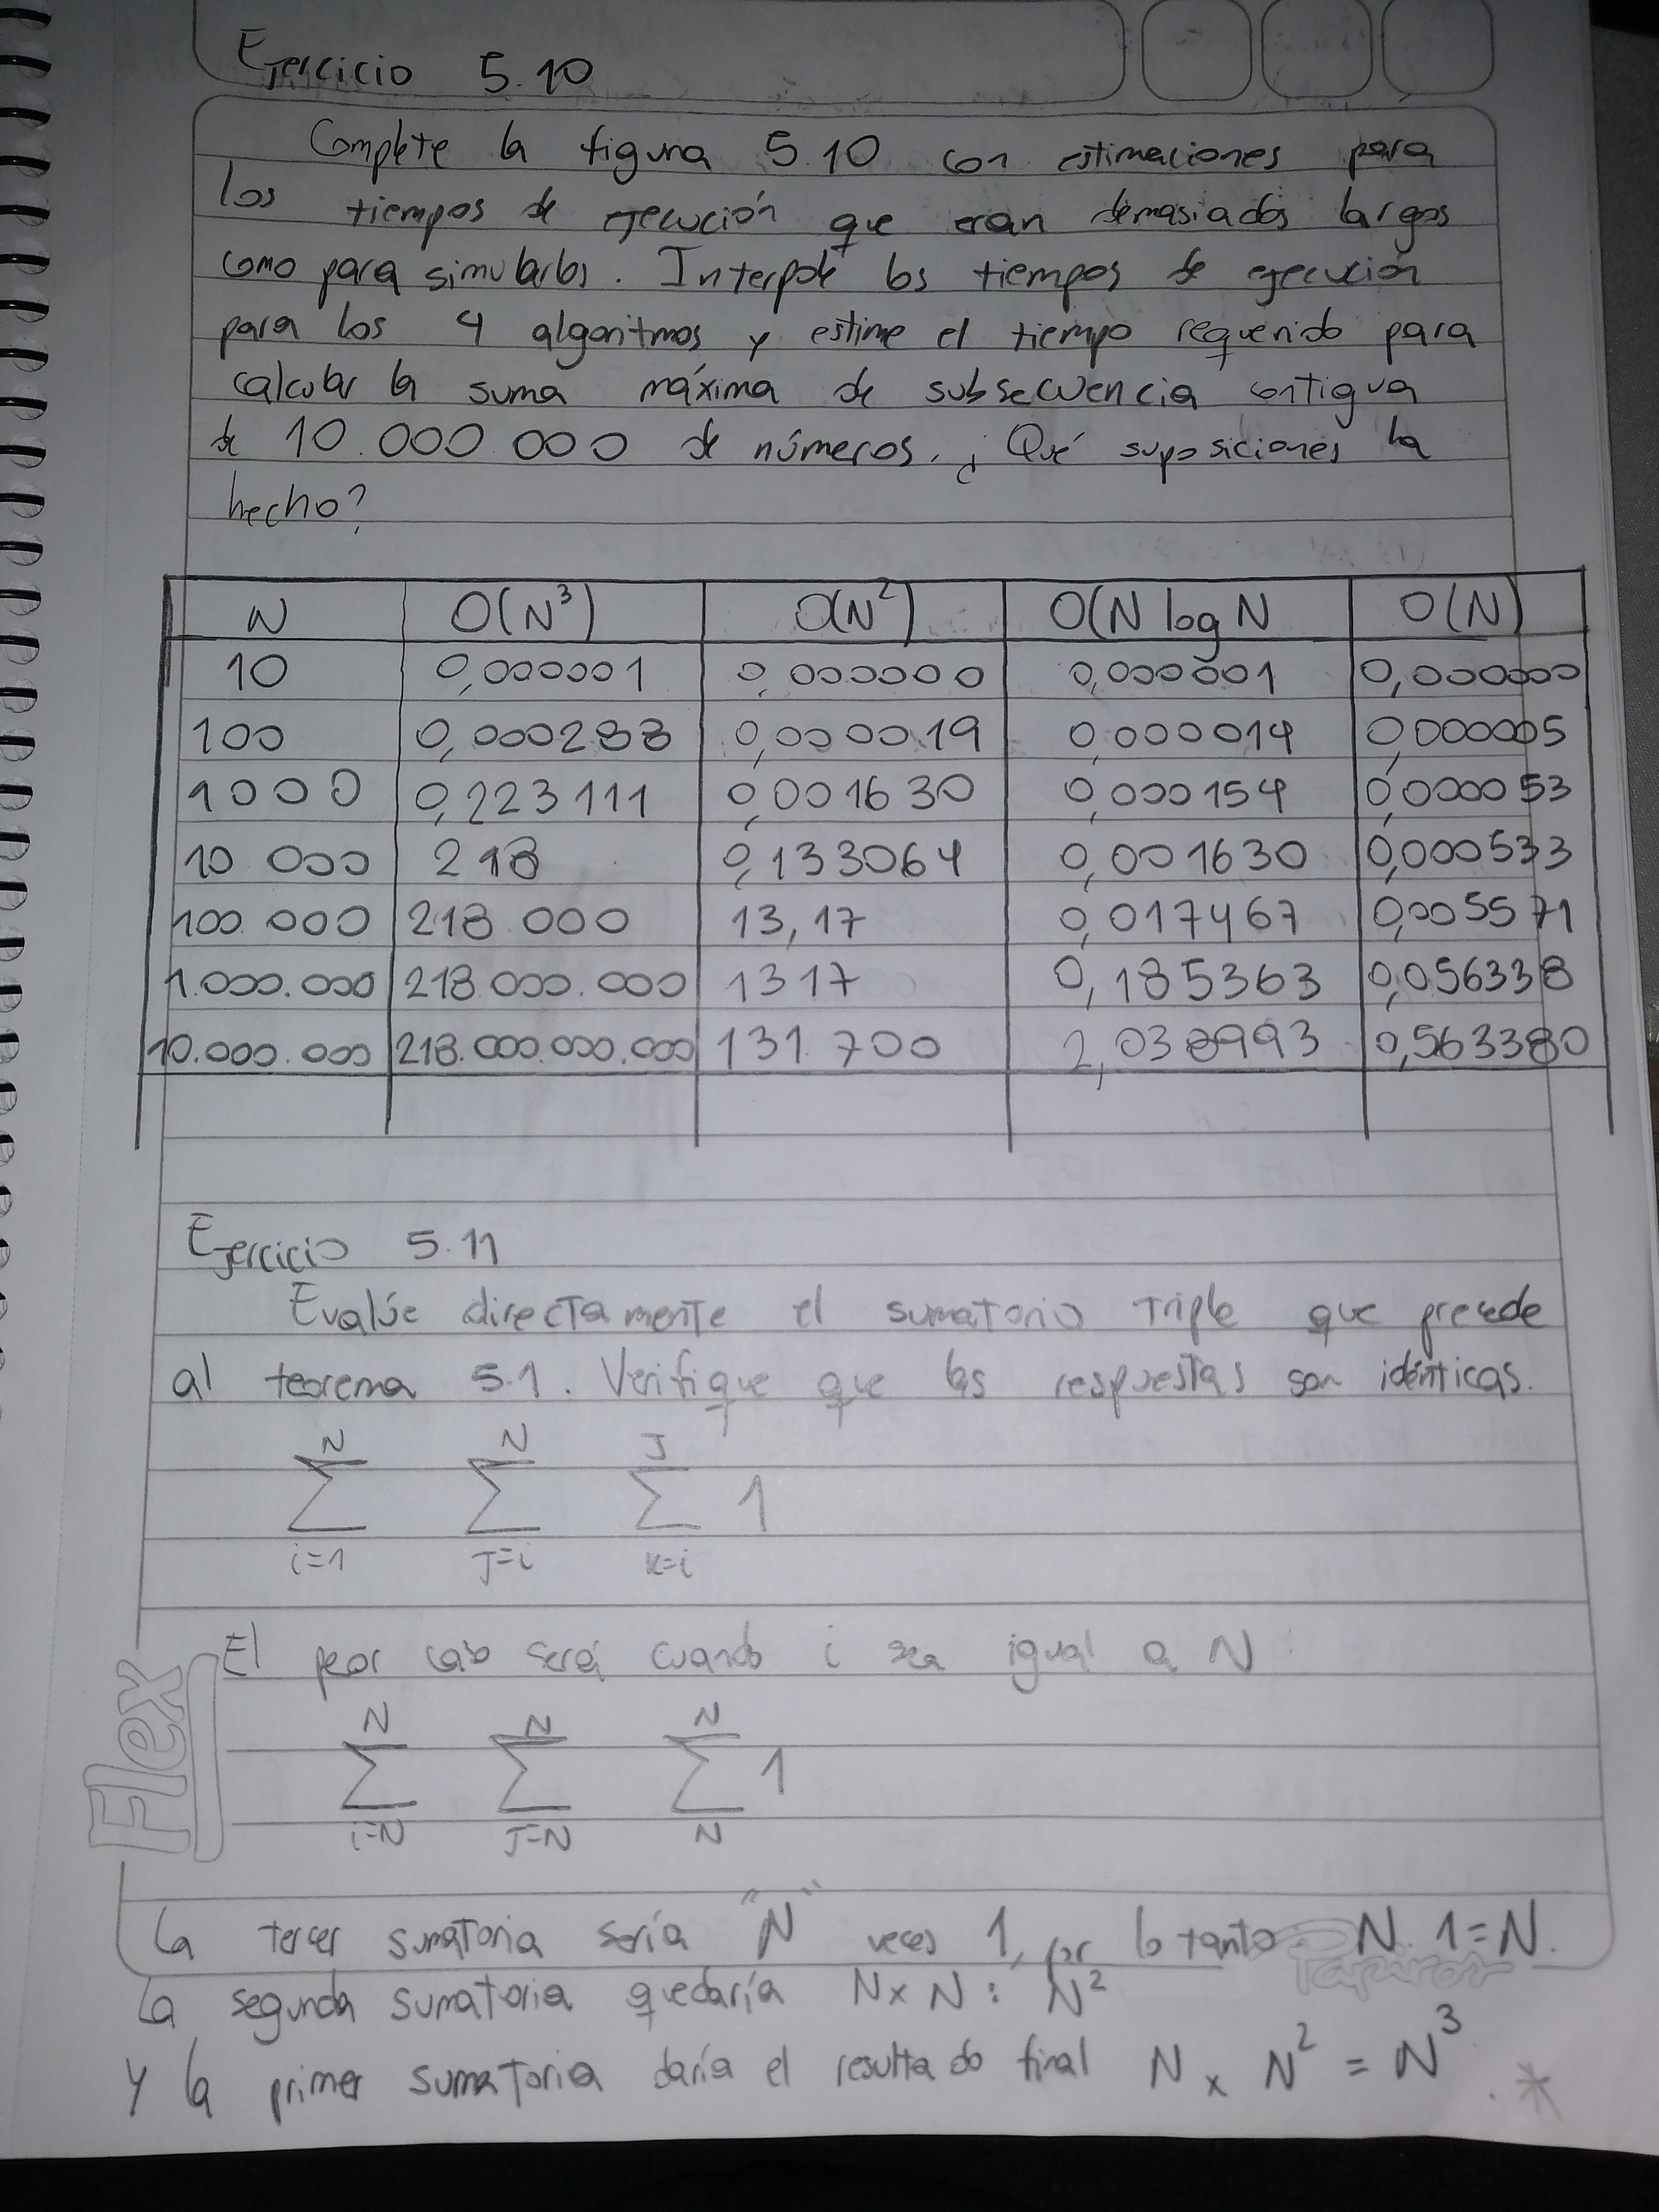 Ejercicio 5.10
Complete la figura 5.10 con estimaciones para
los tiempos de ejecución que eran demasiados largos
como para simularlos. Interpole los tiempos de ejecución
para los 4 algoritmos y estime el tiempo requerido para
calcular la suma máxima de subsecuencia contigua
de 10.000 000 de números. ¿Qué suposiciones ha
hecho?
N O(N³) O(N²) O(N log N O(N)
10 0,000001 0,000000 0,000001 0,000000
100 0,000288 0,000019 0,000014 0,000005
1000 0,223111 0,001630 0,000154 0,000053
10 000 218 0,133064 0,001630 0,000533
100.000 218 000 13,17 0,017467 0,005571
1.000.000 218 000.000 1317 0,185363 0,056338
10.000.000 218.000.000.000 131 700 2,038993 0,563380
Ejercicio 5.11
Evalúe directamente el sumatorio triple que precede
al teorema 5.1. Verifique que las respuestas son idénticas.
N N J
∑ ∑ ∑ 1
i=1 J=i k=i
El peor caso será cuando i sea igual a N:
N N N
∑ ∑ ∑ 1
i=N J=N N
Flex
La tercer sumatoria sería "N" veces 1, por lo tanto N.1=N.
Papiros
La segunda sumatoria quedaría N x N : N²
Y la primer sumatoria daría el resultado final N x N² = N³. *